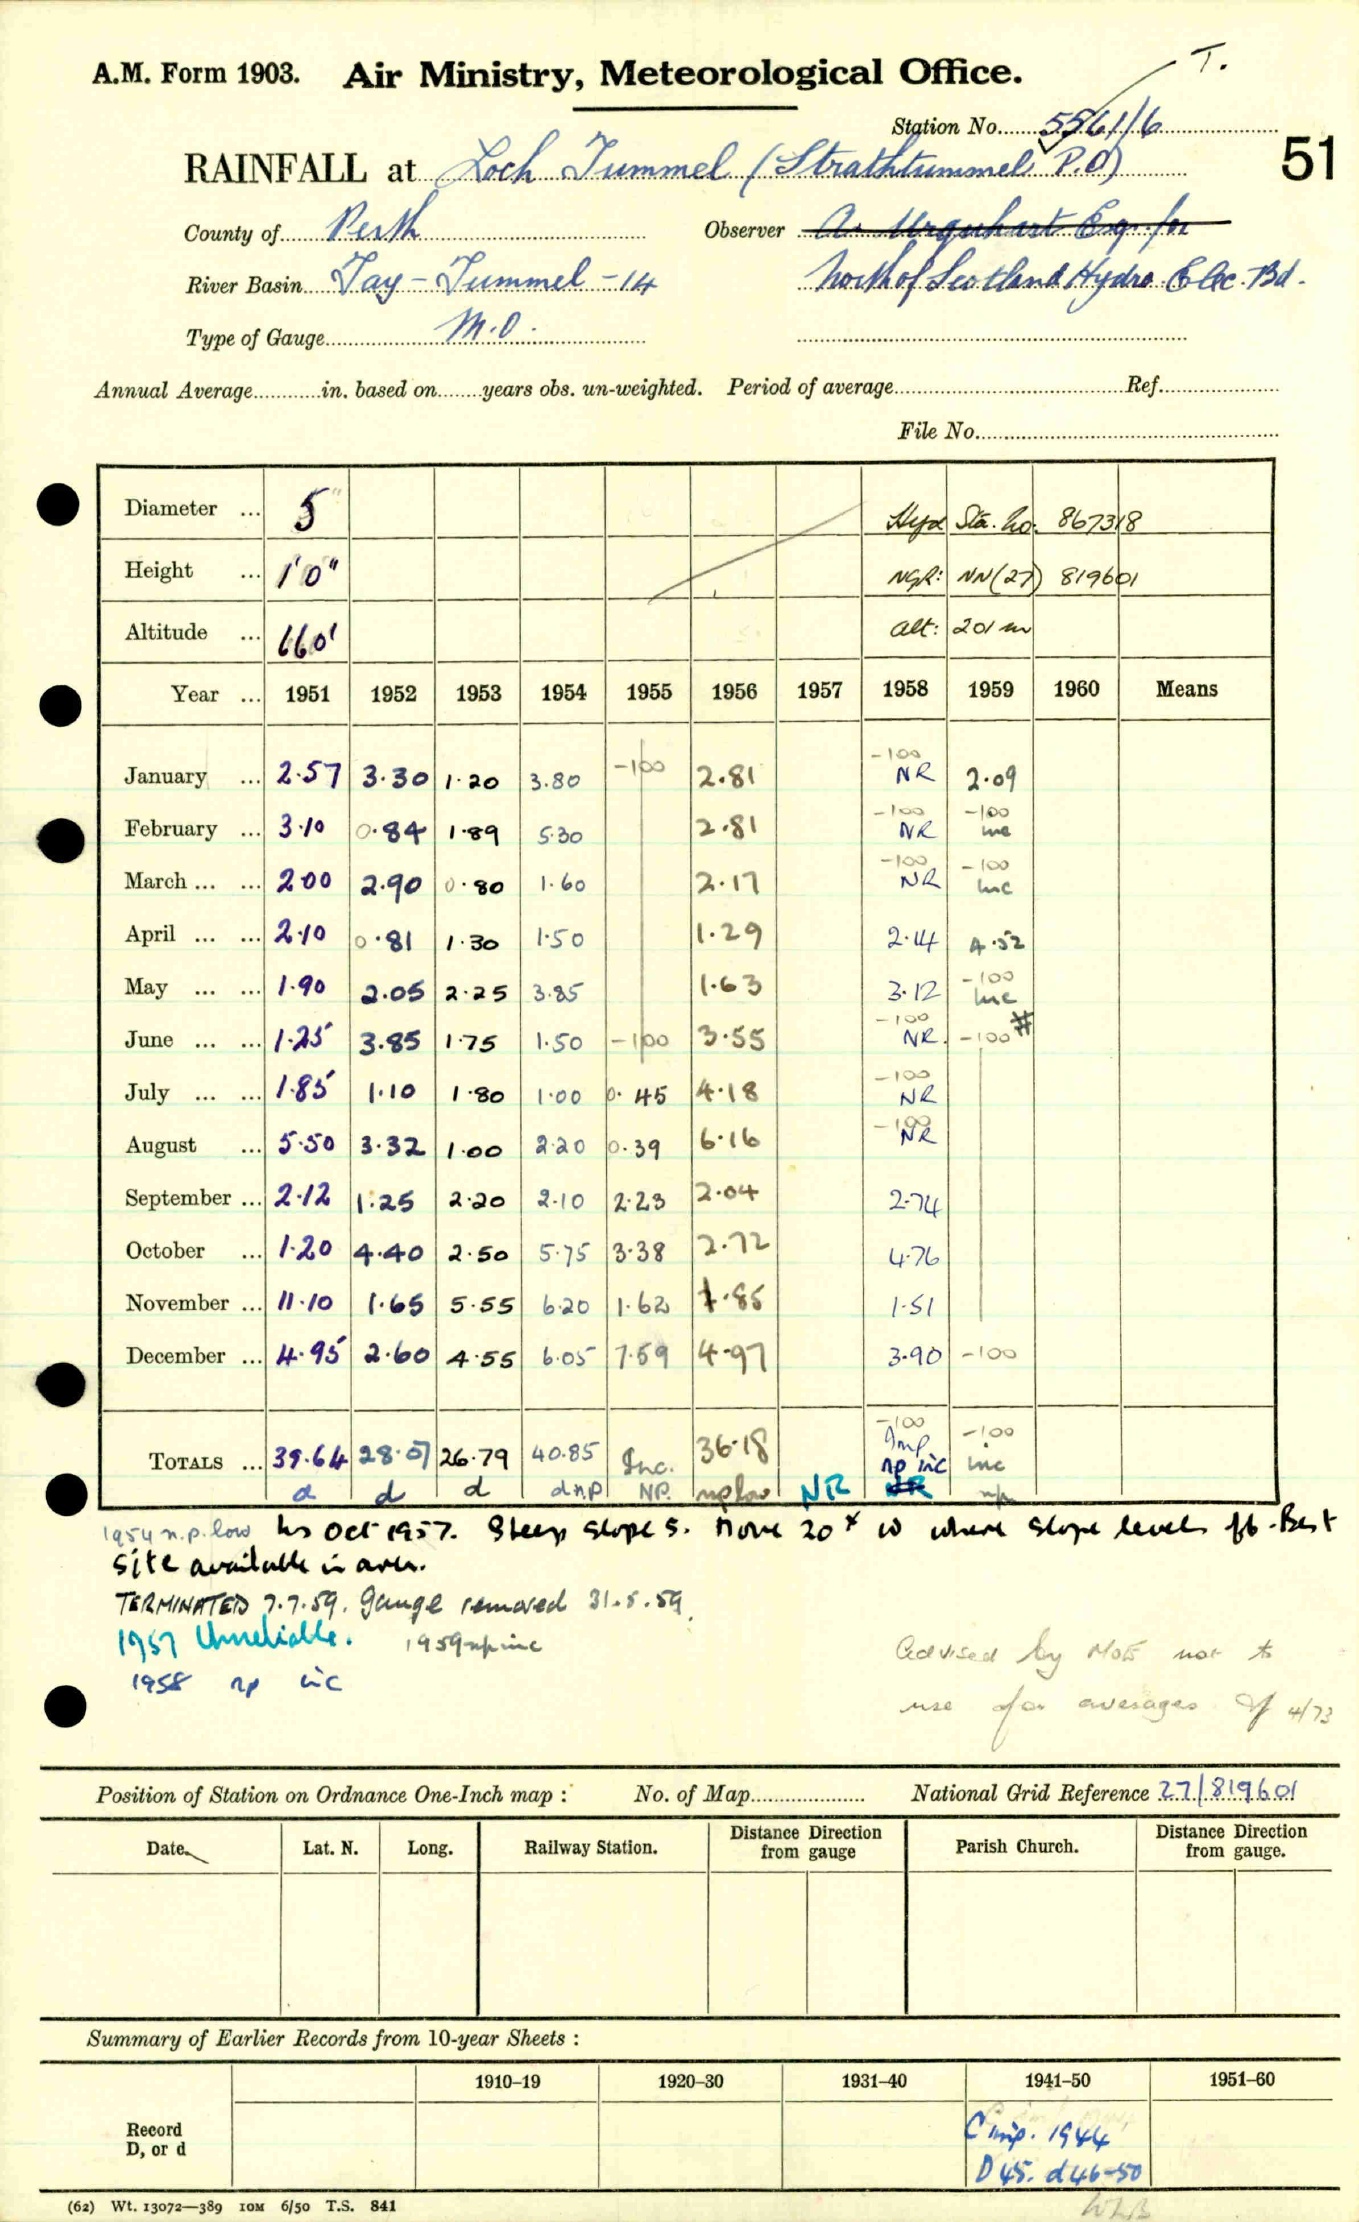 T.
A.M. Form 1903. Air Ministry, Meteorological Office.
Station No. 5561/6
51
RAINFALL at Loch Tummel (Strathtummel P.O)
County of Perth Observer A. Urquhart Esq. for
River Basin Tay - Tummel - 14 North of Scotland Hydro Elec. Bd.
Type of Gauge M.O.
Annual Average in. based on years obs. un-weighted. Period of average Ref.
File No.
Diameter ... 5" Hyd Sta. No. 867318
Height ... 1'0" NGR: NN(27) 819601
Altitude ... 660' alt: 201 m
Year ... 1951 1952 1953 1954 1955 1956 1957 1958 1959 1960 Means
January ... 2.57 3.30 1.20 3.80 -100 2.81 -100 NR 2.09
February ... 3.10 0.84 1.89 5.30 2.81 -100 NR -100 inc
March ... ... 2.00 2.90 0.80 1.60 2.17 -100 NR -100 inc
April ... ... 2.10 0.81 1.30 1.50 1.29 2.14 4.52
May ... ... 1.90 2.05 2.25 3.85 1.63 3.12 -100 inc
June ... ... 1.25 3.85 1.75 1.50 -100 3.55 -100 NR. -100 #
July ... ... 1.85 1.10 1.80 1.00 0.45 4.18 -100 NR
August ... 5.50 3.32 1.00 2.20 0.39 6.16 -100 NR
September ... 2.12 1.25 2.20 2.10 2.23 2.04 2.74
October ... 1.20 4.40 2.50 5.75 3.38 2.72 4.76
November ... 11.10 1.65 5.55 6.20 1.62 1.85 1.51
December ... 4.95 2.60 4.55 6.05 7.59 4.97 3.90 -100
TOTALS ... 39.64 28.07 26.79 40.85 Inc. 36.18 -100 Imp np inc -100 inc
d d d d np NP. np low NR NR np
1954 n.p. low Ins Oct 1957. Steep slope S. Move 20x W where slope levels off. Best
site available in area.
TERMINATED 7.7.59. Gauge removed 31.5.59.
1957 Unreliable. 1959 np inc
1958 np inc
Advised by MO8 not to
use for averages 4/73
Position of Station on Ordnance One-Inch map : No. of Map National Grid Reference 27/819601
Date. Lat. N. Long. Railway Station. Distance from gauge Direction Parish Church. Distance from gauge. Direction
Summary of Earlier Records from 10-year Sheets :
1910–19 1920–30 1931–40 1941–50 1951–60
Record
D, or d
C imp. 1944
D 45. d 46-50
(62) Wt. 13072—389 10M 6/50 T.S. 841